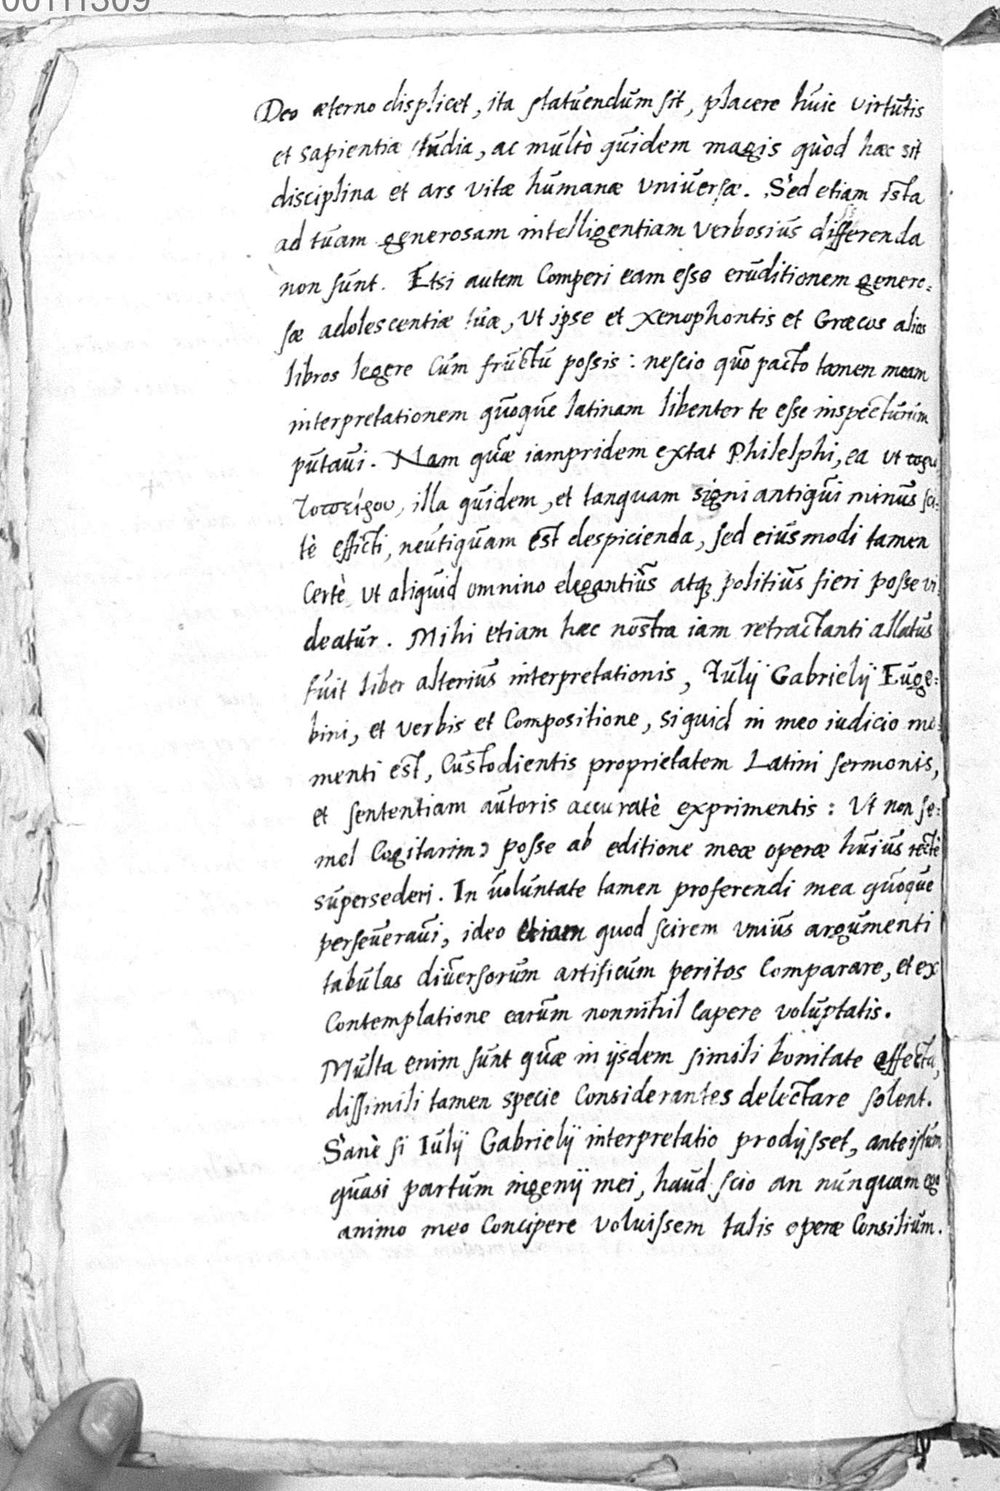 00111309
Deo æterno displicet, ita statuendum sit, placere huic virtutis
et sapientiæ studia, ac multò quidem magis quòd hæc sit
disciplina et ars vitæ humanæ universæ. Sed etiam ista
ad tuam generosam intelligentiam verbosius differenda
non sunt. Etsi autem Comperi eam esse eruditionem genero=
sæ adolescentiæ tuæ, ut ipse et Xenophontis et Græcos alios
libros legere Cum fructu possis: nescio quo pacto tamen meam
interpretationem quoque latinam libenter te esse inspecturum
putavi. Nam quæ iampridem extat Philelphi, ea ut
illa quidem, et tanquam signi antiqui minus sci=
tè efficti, neutiquam est despicienda, sed eiusmodi tamen
Certè ut aliquid omnino elegantius atq; politius fieri posse vi
deatur. Mihi etiam hæc nostra iam retractanti allatus
fuit liber alterius interpretationis, Iulij Gabrielij Euge=
bini, et verbis et Compositione, siquid in meo iudicio mo=
menti est, Custodientis proprietatem Latini sermonis,
et sententiam autoris accuratè exprimentis: Ut non se=
mel Cogitarim posse ab editione meæ operæ huius rectè
supersederi. In voluntate tamen proferendi mea quoque
perseveravi, ideo etiam quod scirem unius argumenti
tabulas diversorum artificum peritos Comparare, et ex
Contemplatione earum nonnihil Capere voluptatis.
Multa enim sunt quæ in ijsdem simili bonitate effecta,
dissimili tamen specie Considerantes delectare solent.
Sanè si Iulij Gabrielij interpretatio prodijsset, ante istum
quasi partum ingenij mei, haud scio an nunquam ego
animo meo Concipere voluissem talis operæ Consilium.